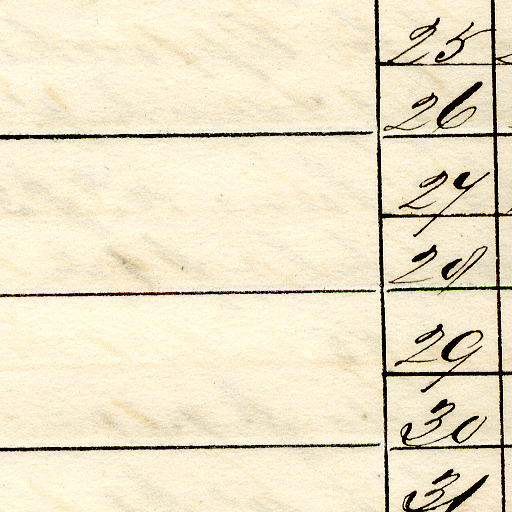 25
26
27
28
29
30
31